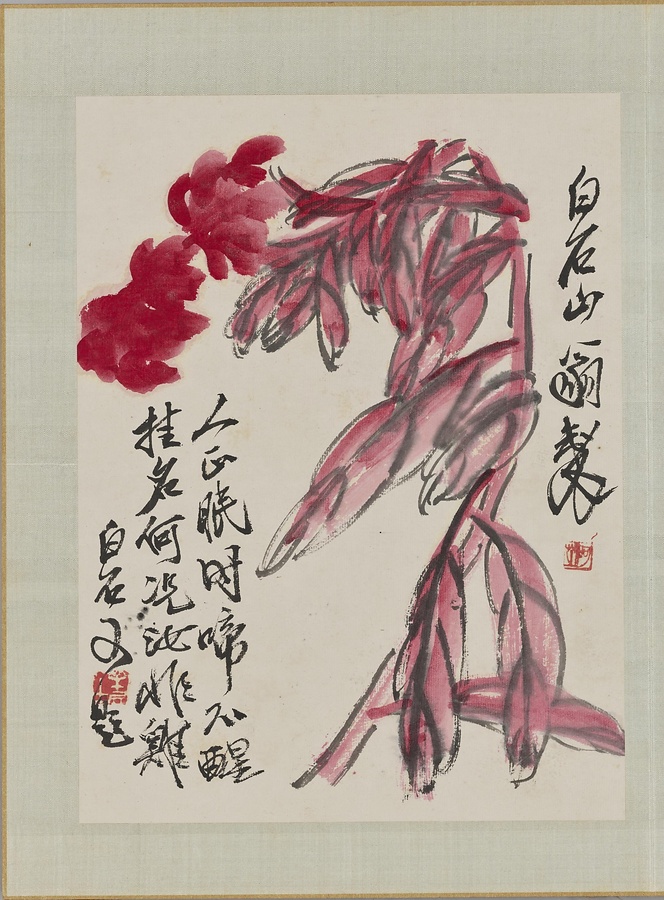 白石山翁製
人正眠时啼不醒
挂名何况汝非雞
白石又題